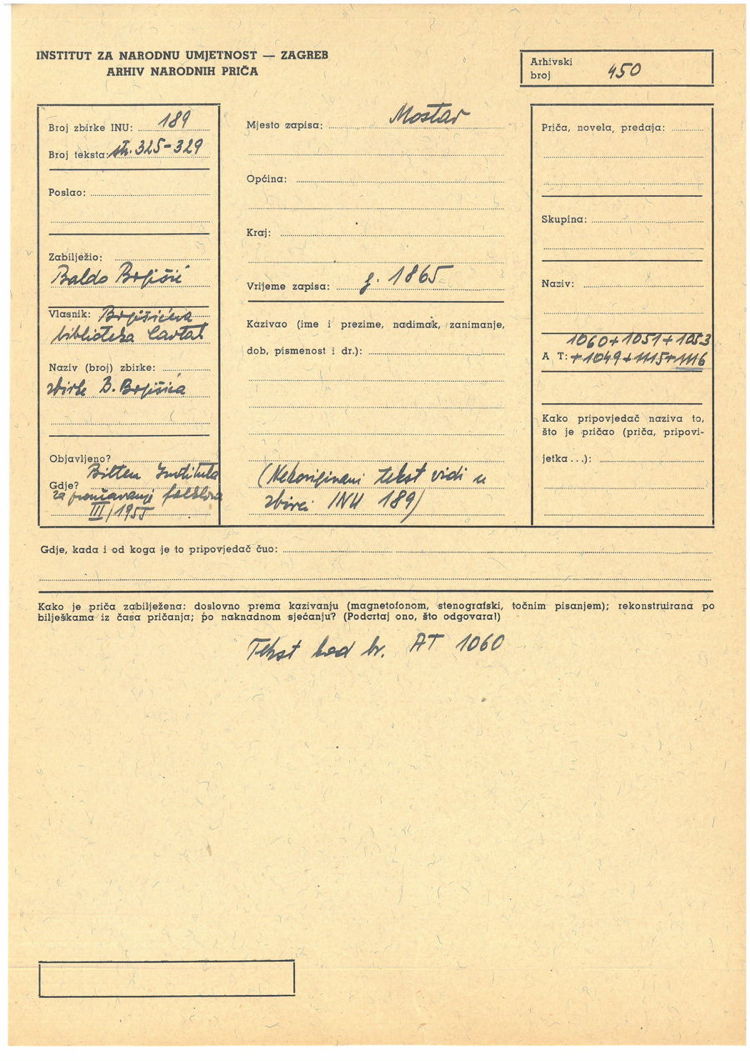 INSTITUT ZA NARODNU UMJETNOST — ZAGREB
ARHIV NARODNIH PRIČA
Arhivski
broj 450
Broj zbirke INU: 189
Broj teksta: str. 325-329
Poslao:
Zabilježio:
Baldo Bogišić
Vlasnik: Bogišićeva
biblioteka Cavtat
Naziv (broj) zbirke:
zbirke B. Bogišića
Objavljeno?
Bilten Instituta
Gdje? za proučavanje folklora
III/1955
Mjesto zapisa: Mostar
Općina:
Kraj:
Vrijeme zapisa: g. 1865
Kazivao (ime i prezime, nadimak, zanimanje,
dob, pismenost i dr.):
(Nekorigirani tekst vidi u
zbirci INU 189)
Priča, novela, predaja:
Skupina:
Naziv:
1060+1051+1053
A T: +1049+1115+1116
Kako pripovjedač naziva to,
što je pričao (priča, pripovi-
jetka...):
Gdje, kada i od koga je to pripovjedač čuo:
Kako je priča zabilježena: doslovno prema kazivanju (magnetofonom, stenografski, točnim pisanjem); rekonstruirana po
bilješkama iz časa pričanja; po naknadnom sjećanju? (Podcrtaj ono, što odgovara!)
Tekst kod br. AT 1060